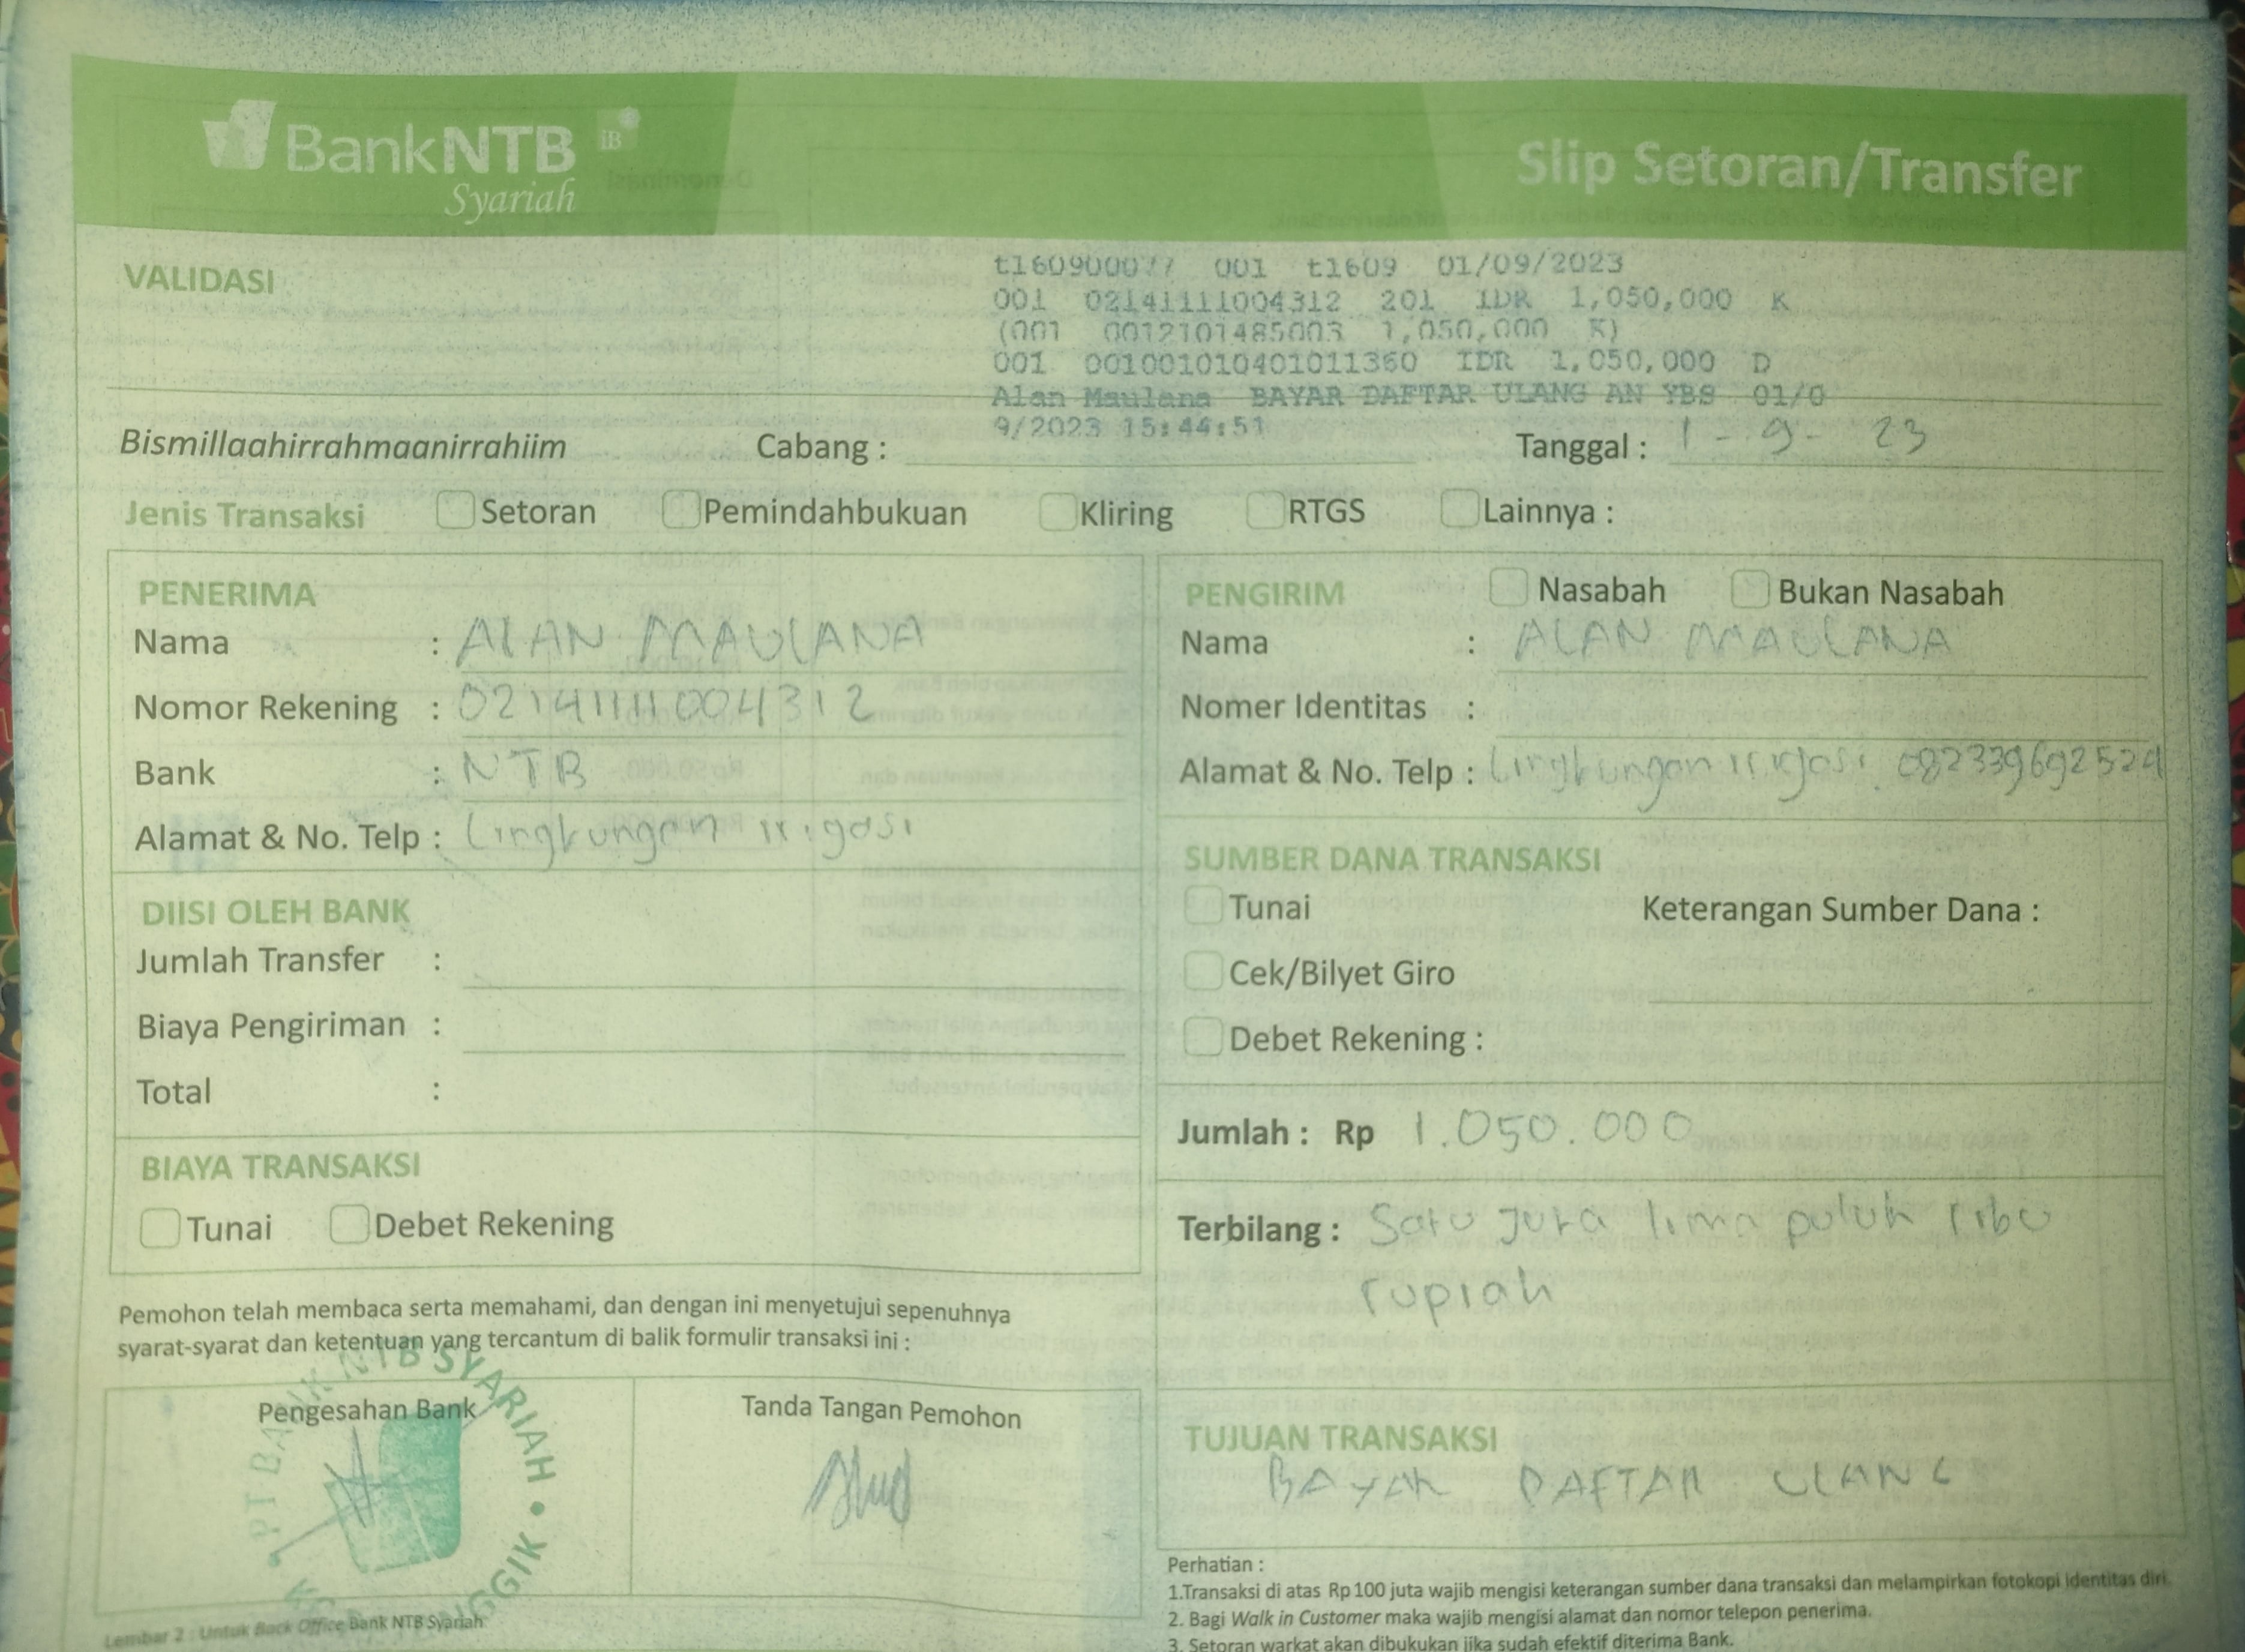 BankNTB iB
Syariah
Slip Setoran/Transfer
VALIDASI
t160900077 001 t1609 01/09/2023
001 02141111004312 201 IDR 1,050,000 K
(001 0012101485003 1,050,000 K)
001 001001010401011360 IDR 1,050,000 D
Alan Maulana BAYAR DAFTAR ULANG AN YBS 01/0
9/2023 15:44:51
Bismillaahirrahmaanirrahiim Cabang : Tanggal : 1 - 9 - 23
Jenis Transaksi Setoran Pemindahbukuan Kliring RTGS Lainnya :
PENERIMA
Nama : ALAN MAULANA
Nomor Rekening : 02141111004312
Bank : NTB
Alamat & No. Telp : Lingkungan irigasi
DIISI OLEH BANK
Jumlah Transfer :
Biaya Pengiriman :
Total :
BIAYA TRANSAKSI
Tunai Debet Rekening
Pemohon telah membaca serta memahami, dan dengan ini menyetujui sepenuhnya
syarat-syarat dan ketentuan yang tercantum di balik formulir transaksi ini :
Pengesahan Bank
PT BANK NTB SYARIAH
Tanda Tangan Pemohon
Lembar 2 : Untuk Back Office Bank NTB Syariah
PENGIRIM Nasabah Bukan Nasabah
Nama : ALAN MAULANA
Nomer Identitas :
Alamat & No. Telp : Lingkungan irigasi. 082339692524
SUMBER DANA TRANSAKSI
Tunai Keterangan Sumber Dana :
Cek/Bilyet Giro
Debet Rekening :
Jumlah : Rp 1.050.000
Terbilang : Satu juta lima puluh ribu
rupiah
TUJUAN TRANSAKSI
BAYAR DAFTAR ULANG
Perhatian :
1.Transaksi di atas Rp100 juta wajib mengisi keterangan sumber dana transaksi dan melampirkan fotokopi identitas diri.
2. Bagi Walk in Customer maka wajib mengisi alamat dan nomor telepon penerima.
3. Setoran warkat akan dibukukan jika sudah efektif diterima Bank.